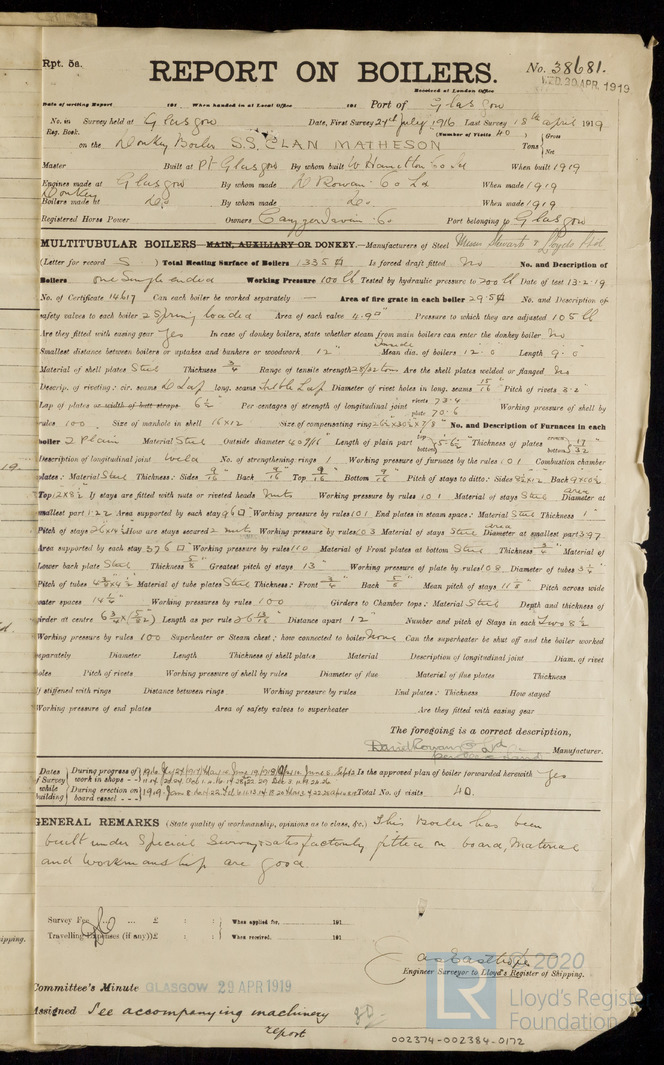 Rpt. 5a.
REPORT ON BOILERS.
No. 38681.
Received at London Office
WED. 30 APR. 1919
Date of writing Report 191 When handed in at Local Office 191 Port of Glasgow
No. in Survey held at Glasgow Date, First Survey 24th July 1916 Last Survey 18th April 1919
Reg. Book. (Number of Visits 40) Gross
on the Donkey Boiler S.S. CLAN MATHESON Tons Net
Master Built at Pt Glasgow By whom built W Hamilton Co Ld When built 1919
Engines made at Glasgow By whom made D Rowan Co Ld When made 1919
Donkey
Boilers made at Do. By whom made Do. When made 1919
Registered Horse Power Owners Cayzer Irvine Co Port belonging to Glasgow
MULTITUBULAR BOILERS MAIN, AUXILIARY OR DONKEY.—Manufacturers of Steel Messrs Stewarts & Lloyds Ltd
(Letter for record S) Total Heating Surface of Boilers 1335 Is forced draft fitted No No. and Description of
Boilers One Single ended Working Pressure 100 lb Tested by hydraulic pressure to 200 lb Date of test 13.2.19
No. of Certificate 14617 Can each boiler be worked separately — Area of fire grate in each boiler 29.5 No. and Description of
safety valves to each boiler 2 Spring loaded Area of each valve 4.9 Pressure to which they are adjusted 105 lb
Are they fitted with easing gear Yes In case of donkey boilers, state whether steam from main boilers can enter the donkey boiler No
Smallest distance between boilers or uptakes and bunkers or woodwork 12" Inside Mean dia. of boilers 12.0 Length 9.0
Material of shell plates Steel Thickness 3/4 Range of tensile strength 28/32 tons Are the shell plates welded or flanged No
Descrip. of riveting: cir. seams D Lap long. seams Treble Lap Diameter of rivet holes in long. seams 15/16 Pitch of rivets 3.2"
Lap of plates or width of butt straps 6 1/2 Per centages of strength of longitudinal joint rivets 73.4 plate 70.6 Working pressure of shell by
rules 100 Size of manhole in shell 16x12 Size of compensating ring No. and Description of Furnaces in each
boiler 2 Plain Material Steel Outside diameter 40 9/16 Length of plain part top bottom Thickness of plates crown bottom 17/32
Description of longitudinal joint Weld No. of strengthening rings 1 Working pressure of furnace by the rules 101 Combustion chamber
plates: Material Steel Thickness: Sides 9/16 Back 9/16 Top 9/16 Bottom 9/16 Pitch of stays to ditto: Sides Back
Top If stays are fitted with nuts or riveted heads Nuts Working pressure by rules 101 Material of stays Steel area Diameter at
smallest part 1.22 Area supported by each stay 96 Working pressure by rules 101 End plates in steam space: Material Steel Thickness 1"
Pitch of stays How are stays secured 2 nuts Working pressure by rules 103 Material of stays Steel area Diameter at smallest part 3.97
Area supported by each stay 376 Working pressure by rules 110 Material of Front plates at bottom Steel Thickness 3/4 Material of
Lower back plate Steel Thickness 5/8 Greatest pitch of stays 13" Working pressure of plate by rules 108 Diameter of tubes 3 1/4"
Pitch of tubes Material of tube plates Steel Thickness: Front 3/4 Back 5/8 Mean pitch of stays Pitch across wide
water spaces 14 1/4" Working pressures by rules 100 Girders to Chamber tops: Material Steel Depth and thickness of
girder at centre Length as per rule Distance apart 12" Number and pitch of Stays in each Two 8 1/2
Working pressure by rules 100 Superheater or Steam chest; how connected to boiler None Can the superheater be shut off and the boiler worked
separately Diameter Length Thickness of shell plates Material Description of longitudinal joint Diam. of rivet
holes Pitch of rivets Working pressure of shell by rules Diameter of flue Material of flue plates Thickness
If stiffened with rings Distance between rings Working pressure by rules End plates: Thickness How stayed
Working pressure of end plates Area of safety valves to superheater Are they fitted with easing gear
The foregoing is a correct description,
David Rowan Co Ltd Manufacturer.
Dates of Survey while building
During progress of work in shops - -
Is the approved plan of boiler forwarded herewith Yes
During erection on board vessel - - -
Total No. of visits 40
GENERAL REMARKS (State quality of workmanship, opinions as to class, &c.) This Boiler has been
built under Special Survey satisfactorily fitted on board, Material
and workmanship are good
Survey Fee ... ... £ : : When applied for, 191
Travelling Expenses (if any) £ : : When received, 191
Engineer Surveyor to Lloyd's Register of Shipping.
Committee's Minute GLASGOW 29 APR 1919
Assigned See accompanying machinery
report
002374-002384-0172
© 2020
LR
Lloyd's Register
Foundation